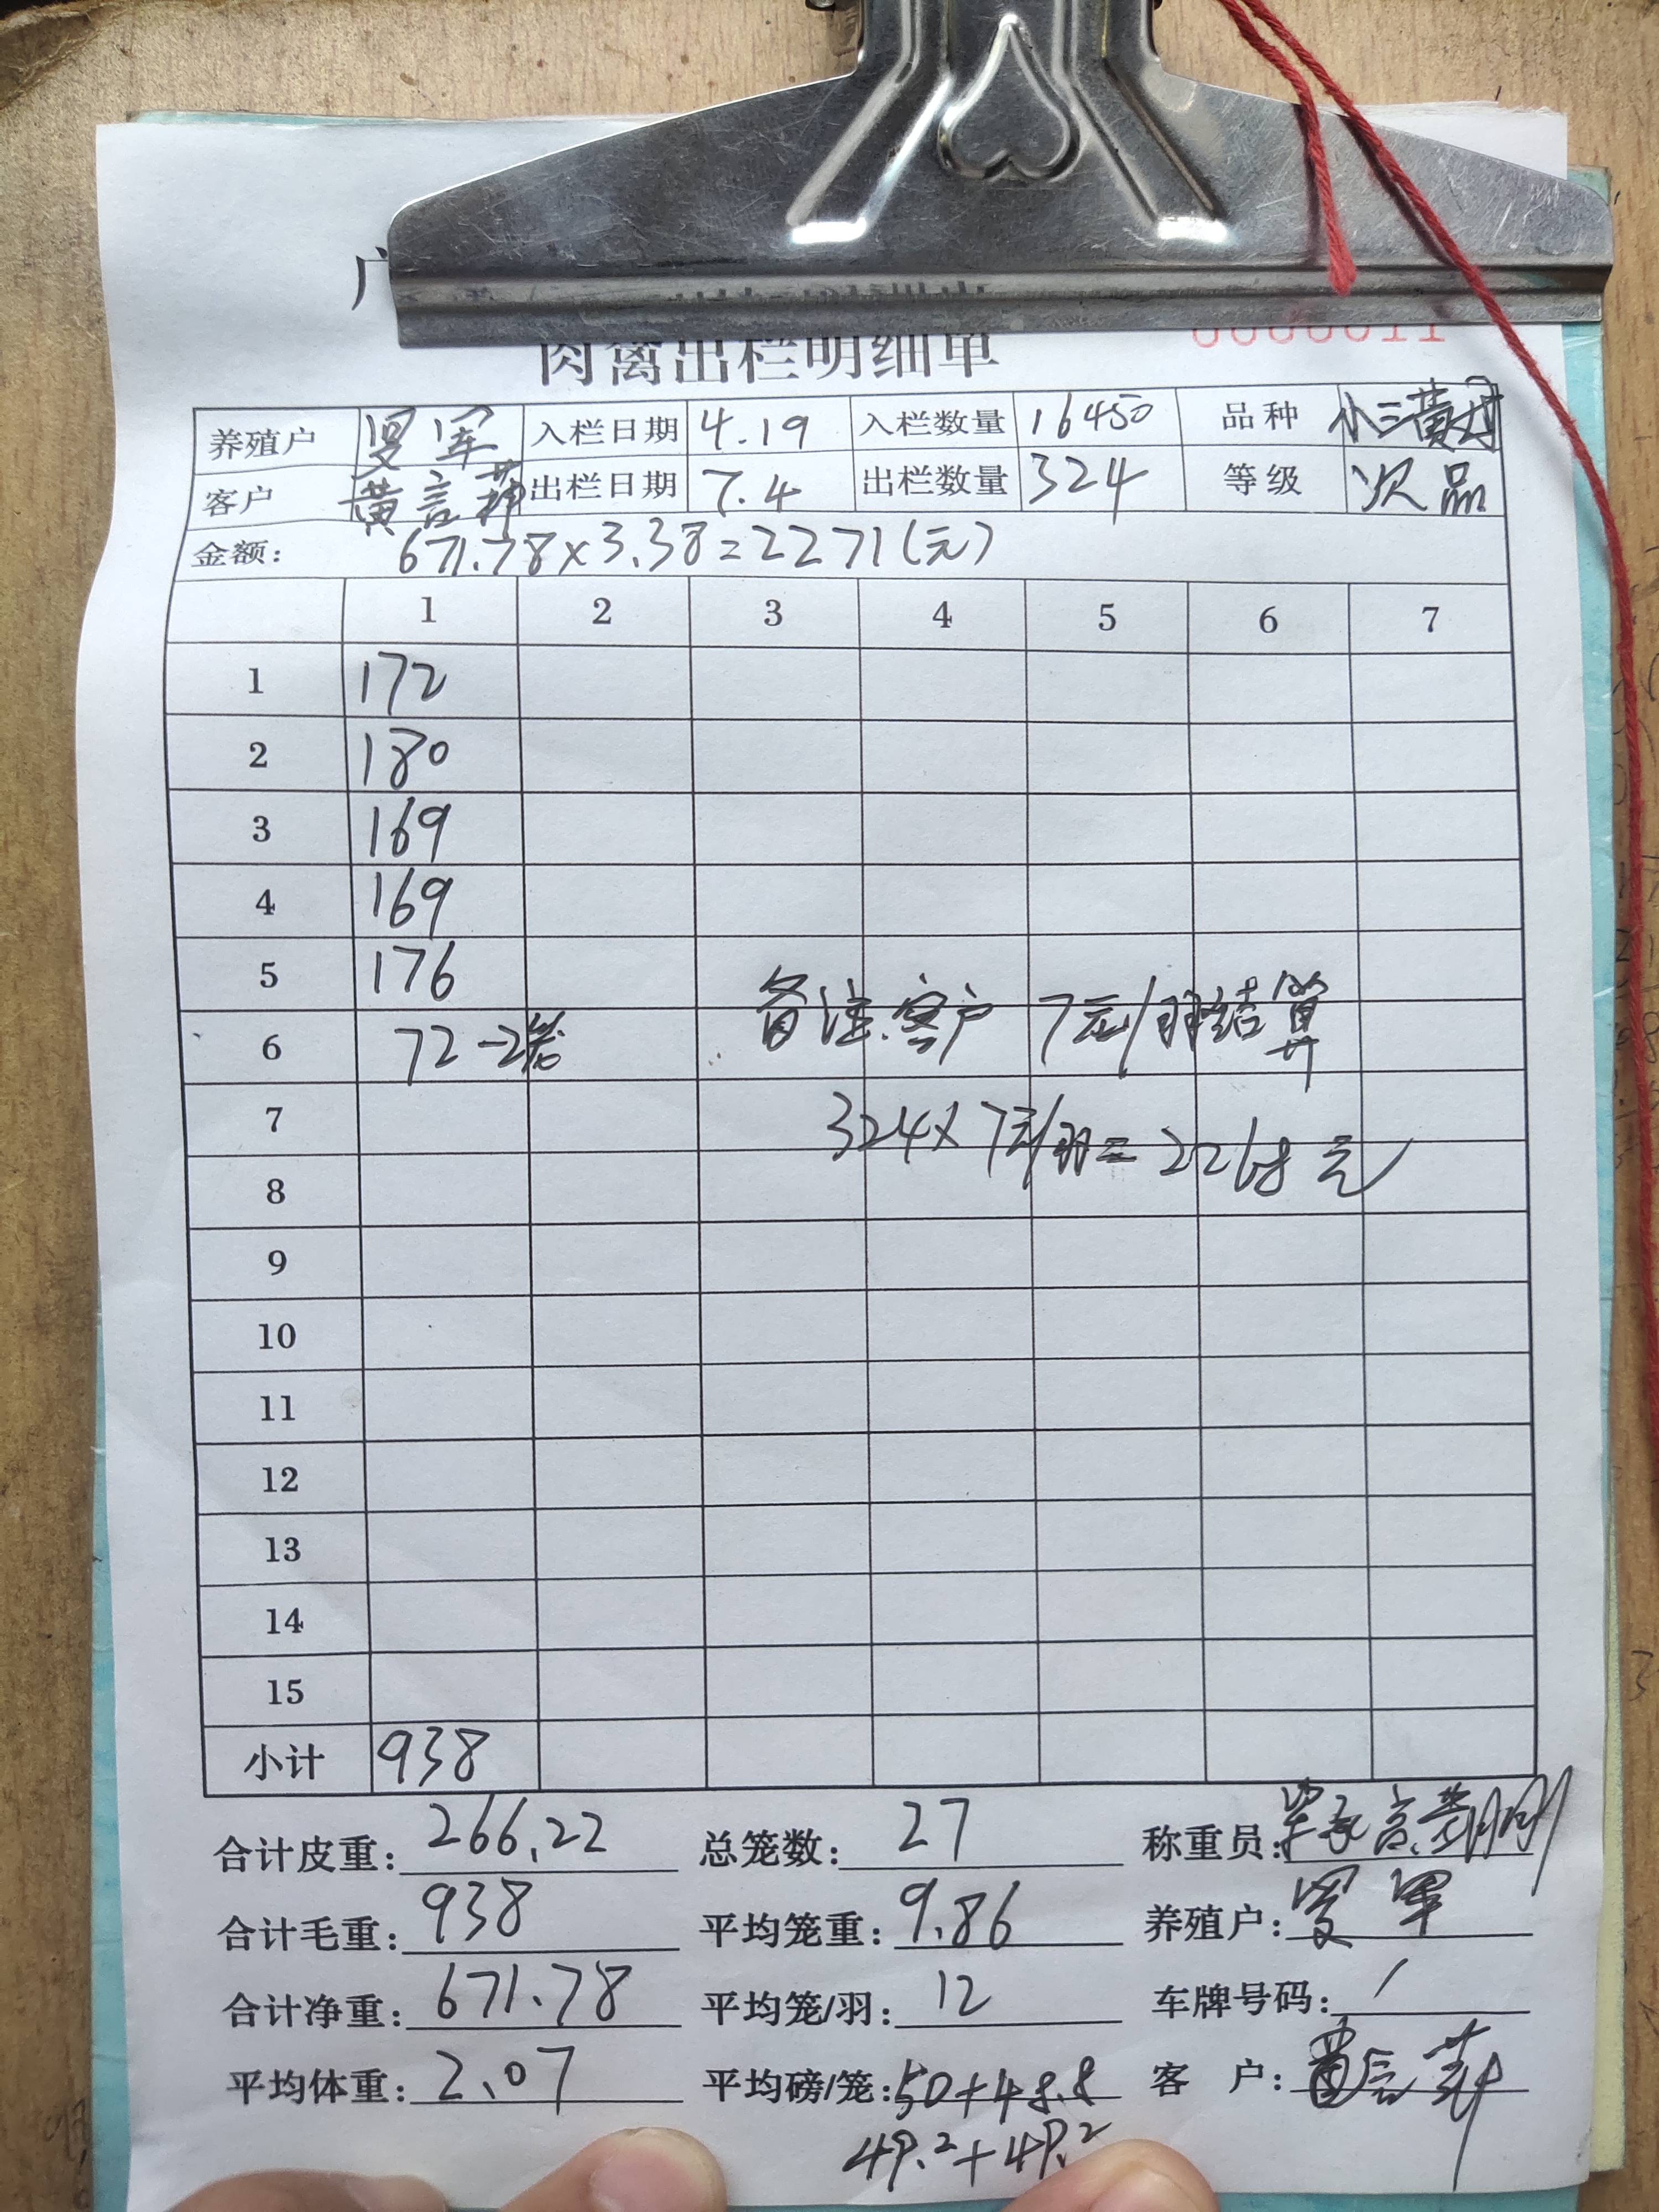 广
肉禽出栏明细单
养殖户 罗军 入栏日期 4.19 入栏数量 16450 品种 小三黄母
客户 黄言萍 出栏日期 7.4 出栏数量 324 等级 次品
金额: 671.78×3.38=2271(元)
1 2 3 4 5 6 7
1 172
2 180
3 169
4 169
5 176
6 72-2笼 备注:客户 7元/羽结算
7 324×7元/羽=2268元
8
9
10
11
12
13
14
15
小计 938
合计皮重: 266.22 总笼数: 27 称重员:
合计毛重: 938 平均笼重: 9.86 养殖户: 罗军
合计净重: 671.78 平均笼/羽: 12 车牌号码: /
平均体重: 2.07 平均磅/笼: 50+48.8 客 户: 黄言萍
49.2+49.2